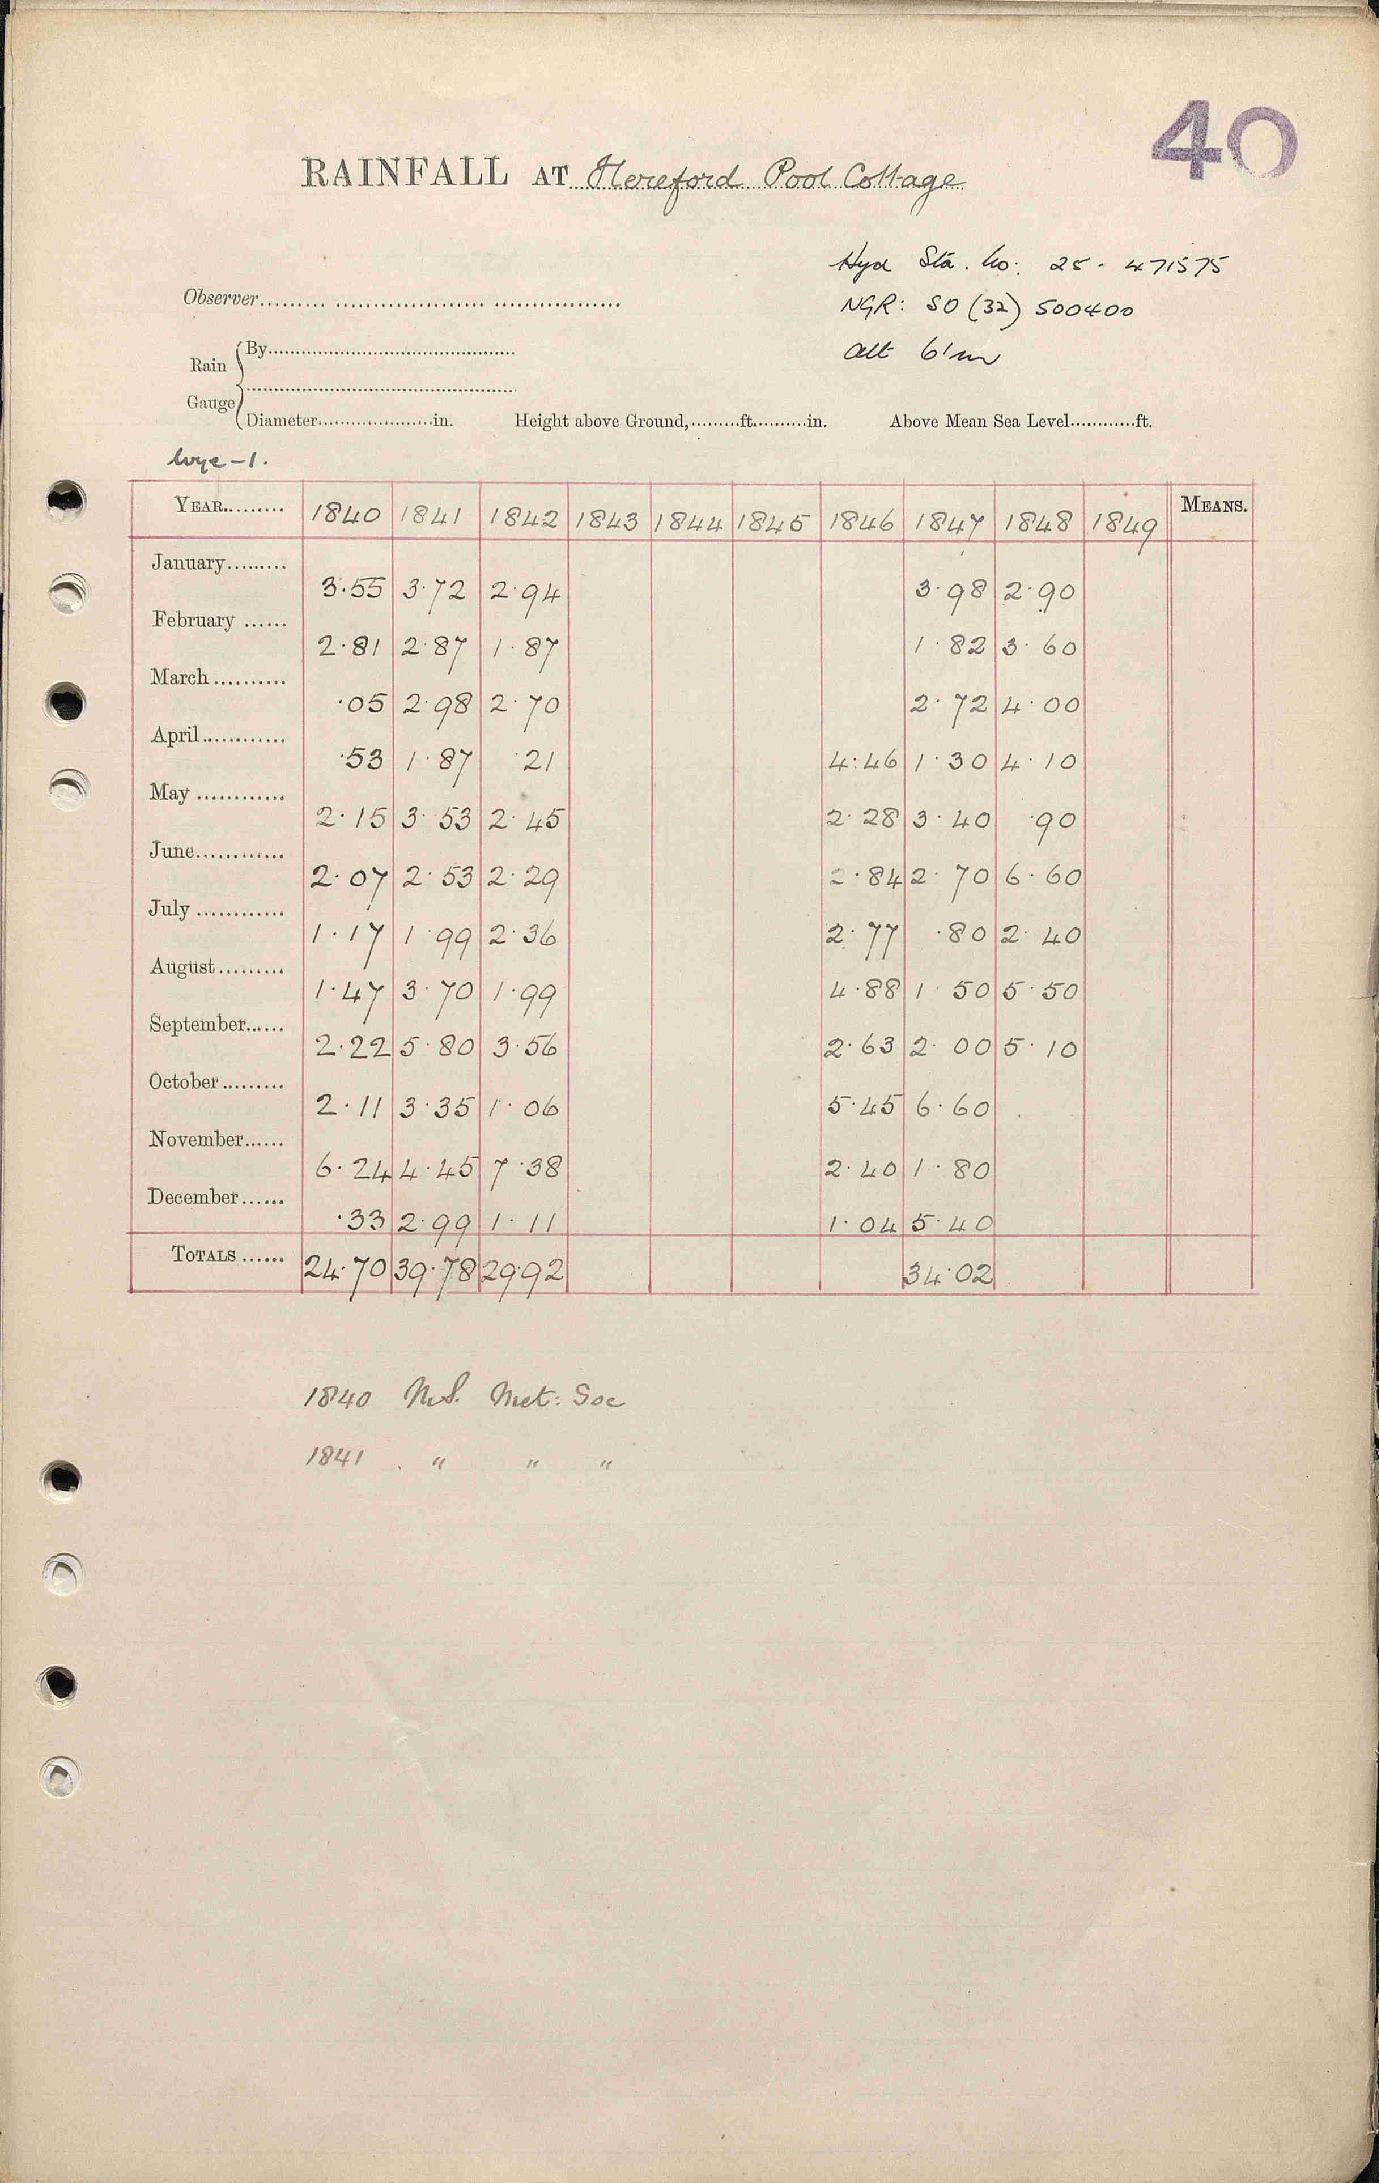 40
RAINFALL AT Hereford Pool Cottage
Hyd Sta. No: 25 - 471575
Observer
NGR: SO (32) 500400
Rain Gauge { By
alt 61m
Diameter in. Height above Ground, ft. in. Above Mean Sea Level ft.
Wye - 1.
YEAR 1840 1841 1842 1843 1844 1845 1846 1847 1848 1849 MEANS.
January 3.55 3.72 2.94 3.98 2.90
February 2.81 2.87 1.87 1.82 3.60
March .05 2.98 2.70 2.72 4.00
April .53 1.87 .21 4.46 1.30 4.10
May 2.15 3.53 2.45 2.28 3.40 .90
June 2.07 2.53 2.29 2.84 2.70 6.60
July 1.17 1.99 2.36 2.77 .80 2.40
August 1.47 3.70 1.99 4.88 1.50 5.50
September 2.22 5.80 3.56 2.63 2.00 5.10
October 2.11 3.35 1.06 5.45 6.60
November 6.24 4.45 7.38 2.40 1.80
December .33 2.99 1.11 1.04 5.40
TOTALS 24.70 39.78 29.92 34.02
1840 MS. Met: Soc
1841 . " " "